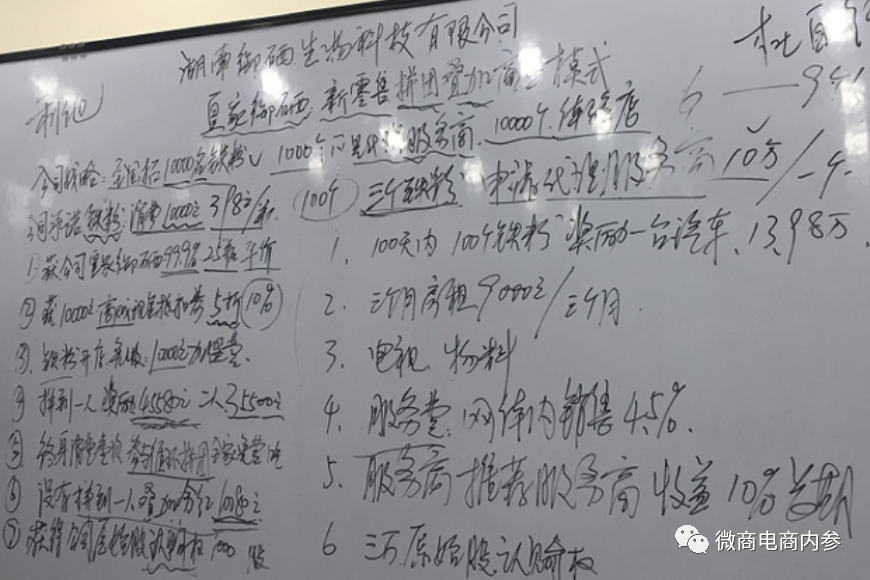 湖南御硒生物科技有限公司
皇家御硒 新零售拼团叠加商业模式
公司战略：全国招10000名铁粉 1000个代理服务商 10000个体验店
公司承诺铁粉：消费10000元 398元/瓶
①获公司皇家御硒99.9% 25瓶 平价
②获10000元高 现金抵扣券5折 10%
③铁粉开店免收10000元加盟费
④拼到一人奖励45580元 二人35500元
⑤终身消费 参与循环拼团
⑥没有拼到一人叠加分红10180元
⑦获得公司原始股认购权1000股
100个 三个铁粉 申请代理服务商10万/一年
1. 100天内100个铁粉奖励一台汽车、13.98万
2. 三个月房租9000元/三个月
3. 电视 物料
4. 服务费：网体内销售4.5%
5. 服务商推荐服务商收益10%
6 三万原始股认购权
微商电商内参